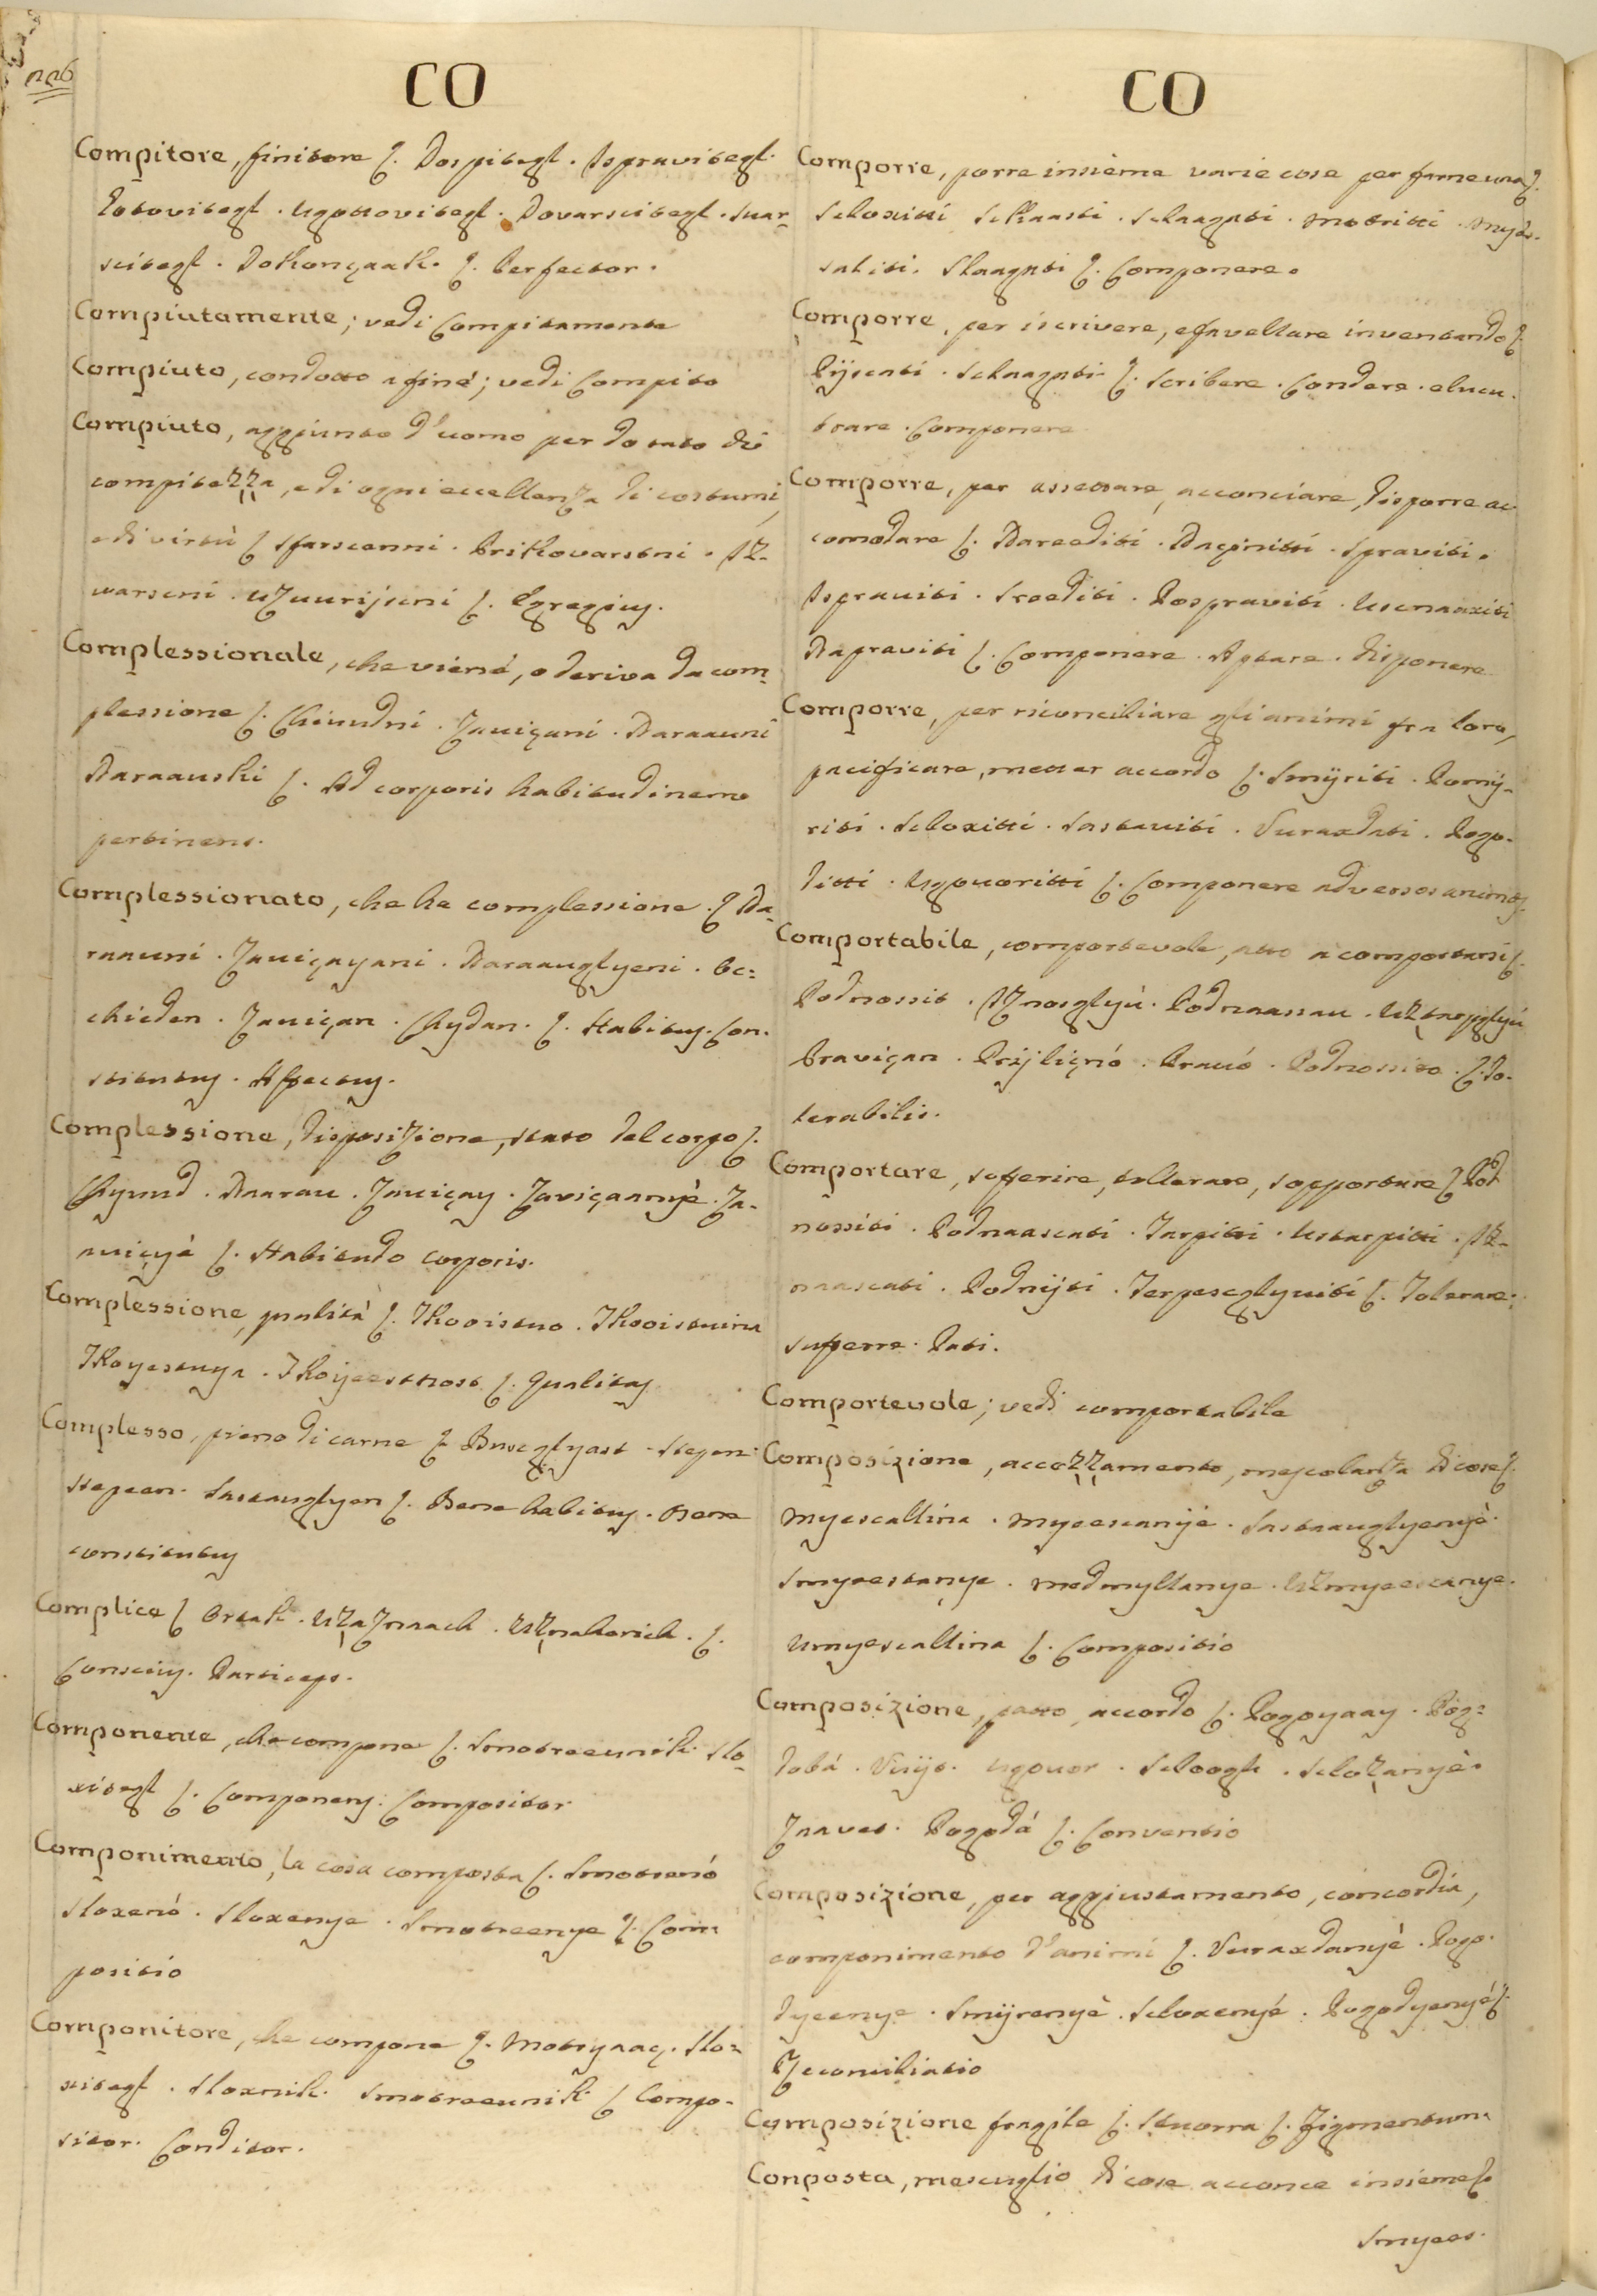 226
CO
Compitore, finitore ſ. Dospitegl. Ispravitegl.
Gotovitegl. Ugottovitegl. Dovarscitegl. Suar-
scitegl. Dokonçaak. ſ. Perfector.
Compiutamente; vedi Compitamente
Compiuto, condotto a fine; vedi Compito
Compiuto, aggiunto d'uomo per dotato di
compitezza, e di ogni eccellenza di costumi,
e di virtù ſ. Sfarscenni. Prikovarstni. IZ-
varsni. Uzuurijseni ſ. Egregius.
Complessionale, che viene, o deriva da com-
plessione ſ. Chiuudni. Zauiçani. Naraauni
Naraauski ſ. Ad corporis habitudinem
pertinens.
Complessionato, che ha complessione. ſ. Na-
raauni. Zauiçayani. Naraauglyeni. Oc-
chieden. Zauiçan. Chydan. ſ. Habitus. Con-
stitutus. Affectus.
Complessione, disposizione, stato del corpo ſ.
Chyuud. Naarau. Zauiçay. Zaviçaanyè. Za-
uiçyà ſ. Habitudo corporis.
Complessione, qualità ſ. Kooistuo. Kooistuina
Kayestuya. Koijeestnost ſ. Qualitas
Complesso, pieno di carne ſ. Puseglyast. Stepen.
Stepeen. Sastauglyen ſ. Bene habitus. Bene
constitutus
Complice ſ. Ortak. Uzaznaach. Uznahonich. ſ.
Conscius. Particeps.
Componente, che compone ſ. Smotreeunik. Slo-
xitegl ſ. Componens. Compositor
Componimento, la cosa composta ſ. Smotrenó
Sloxenó. Sloxenye. Smotreenye ſ. Com-
positio
Componitore, che compone ſ. Motryaaç. Slo-
xitegl. Sloxnik. Smotreeunik ſ. Compo-
sitor. Conditor.
CO
Comporre, porre insieme varie cose per farne una ſ.
Scloxitti Sclaasti. Sclaagati. Motritti. Myes-
satiti. Slaagati ſ. Componere.
Comporre, per iscrivere, e favellare inventando ſ.
Pijscati. Sclaagati ſ. Scribere. Condere. elucu-
brare. Componere
Comporre, per assettare, acconciare, disporre ac
comodare ſ. Nareediti. Naçinitti. Spraviti.
Ispraviti. Sreediti. Rospraviti. Uscnaaxiti
Napraviti ſ. Componere. Aptare. Disponere
Comporre, per riconciliare gli animi fra loro,
pacificare, metter accordo ſ. Smijriti. Pomij-
riti. Scloxitti. Sastaviti. Suraxdati. Pogo-
ditti. Ugovoritti ſ. Componere adversos animos
Comportabile, comportevole, atto a comportarsi ſ.
Podnossit. IZnosglyú. Podnaassau. Uztarpglyú
Praviçan. Prijliçnó. Pravó. Podnossito. ſ. To-
lerabilis.
Comportare, sofferire, tollerare, sopportare ſ. Pod
nossiti. Podnaascati. Tarpitti. Ustarpitti. IZ-
naascati. Podnijti. Terpeseglyuiti ſ. Tolerare.
sufferre. Pati.
Comportevole; vedi comportabile
Composizione, accozzamento, mescolanza di cose ſ.
Myescallina. Myeescanyè. Sastaauglyenyè.
Smyeestanye. Medmyllanye. Uzmyeescanye.
Umyescallina ſ. Compositio
Composizione, patto, accordo ſ. Pogoyaay. Pog-
dobá. Vuijt. Ugovor. Scloogh. Sclozanyè.
Zaavet. Pogodá ſ. Conventio
Composizione, per aggiustamento, concordia,
componimento d'animi ſ. Suraxdanyè. Pogo-
dyeenye. Smijrenyè. Scloxenyé. Pogodyenyé ſ.
Reconciliatio
Composizione fragile ſ. Stuorra ſ. Figmentum.
Conposta, mescuglio di cose acconce insieme ſ.
Smyees.